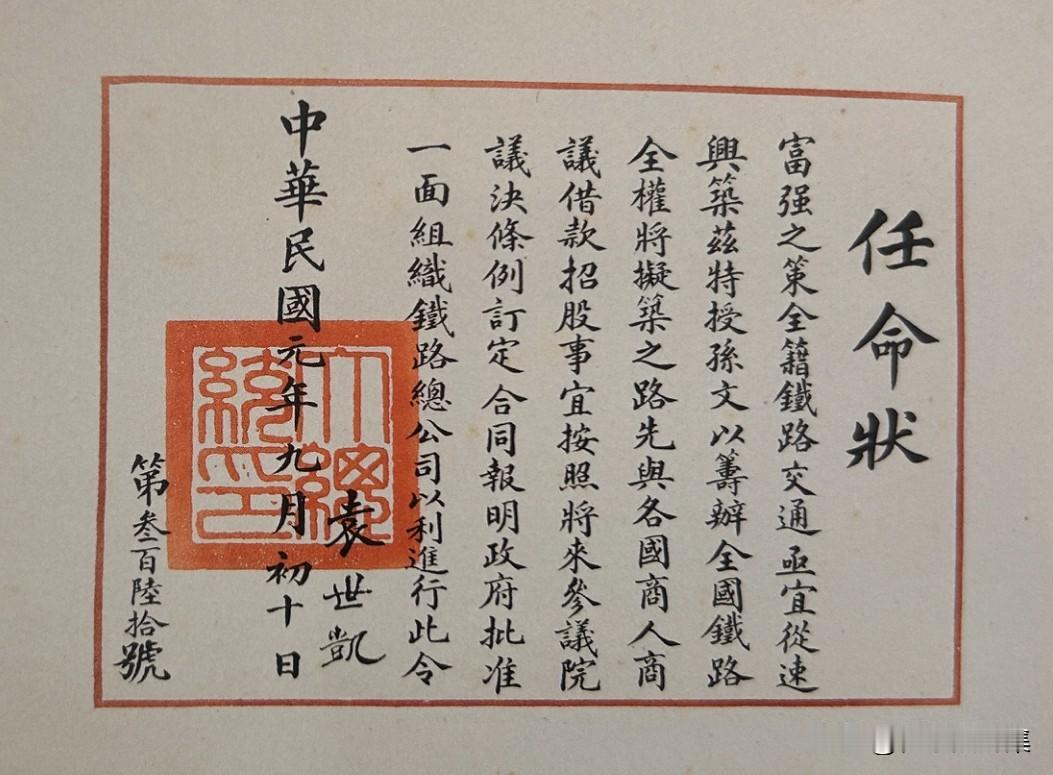 任命狀
富强之策全籍鐵路交通亟宜從速
興築茲特授孫文以籌辦全國鐵路
全權將擬築之路先與各國商人商
議借款招股事宜按照將來參議院
議決條例訂定合同報明政府批准
一面組織鐵路總公司以利進行此令
袁世凱
中華民國元年九月初十日
大總統印
第叁百陸拾號